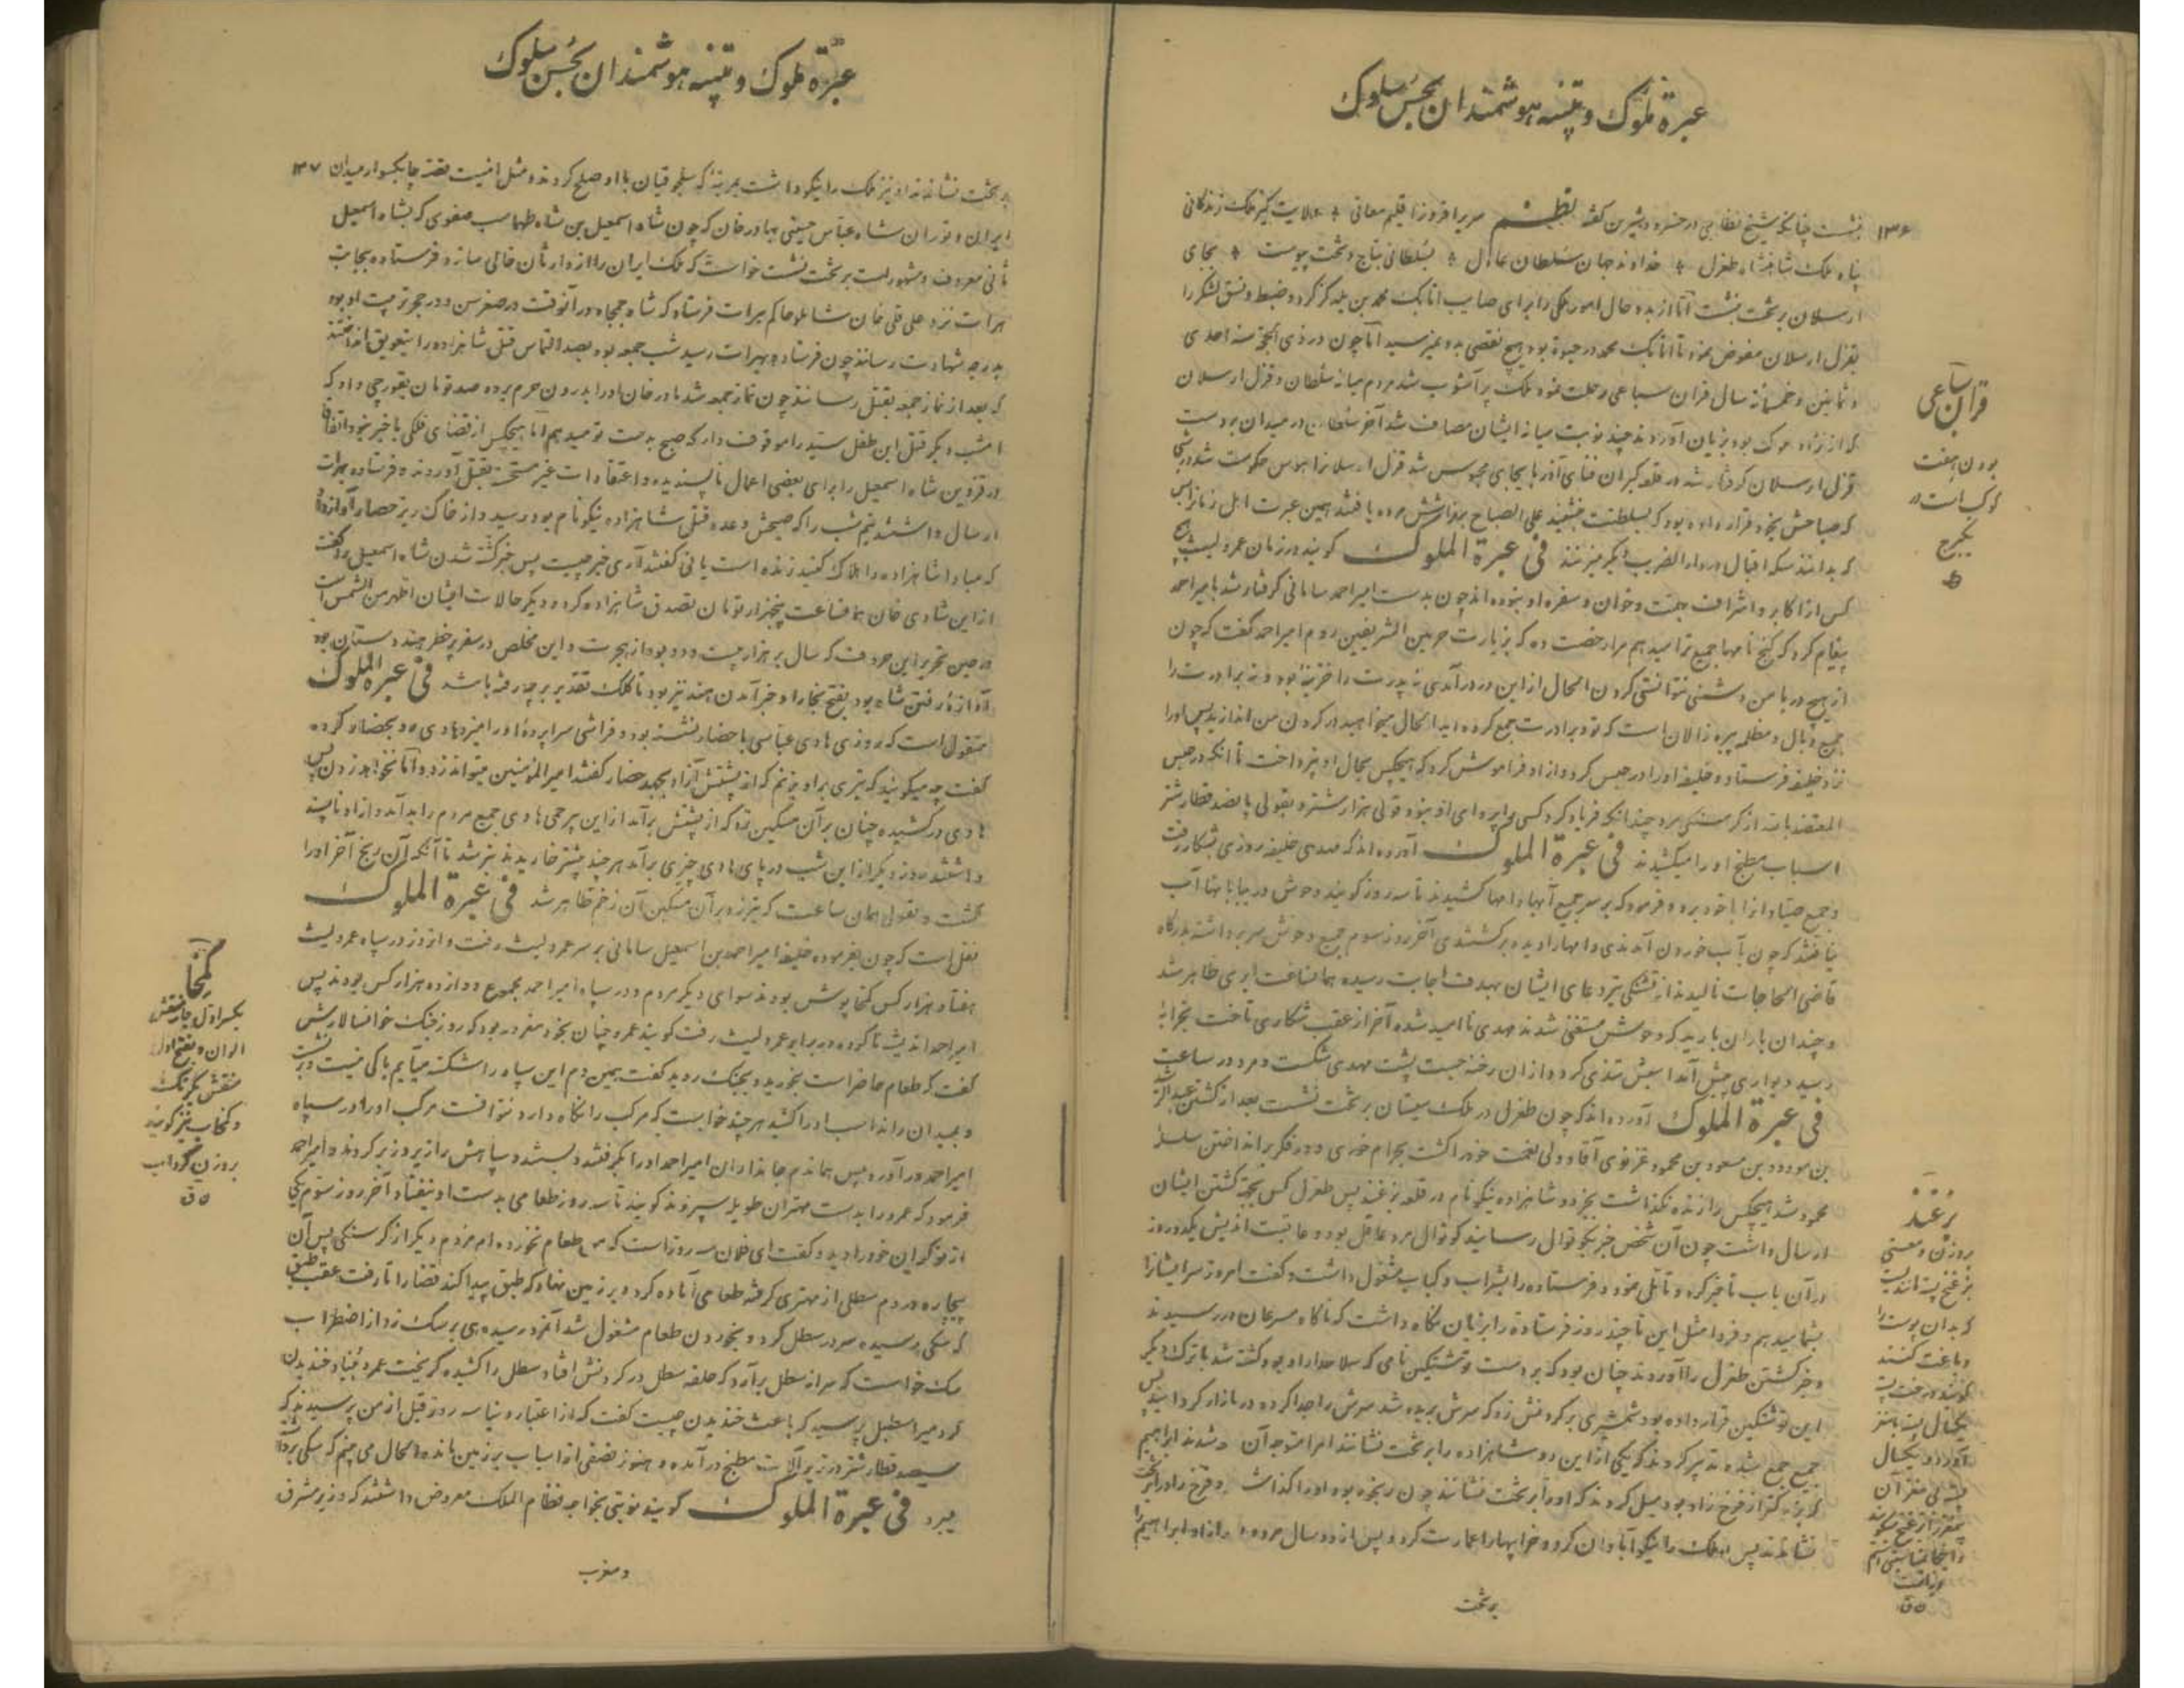 عبرة ملوک و تنبیه هوشمندان بحسن سلوک
۱۳۶ بنشست چنانچه شیخ نظامی در خسرو و شیرین گفته نظم سریر افروز اقلیم معانی ولایت گیر ملک زندگانی
پناه ملک شاهنشاه طغرل خداوند جهان سلطان عادل بسلطانی بتاج و تخت پیوست بجای
ارسلان بر تخت بنشست اما از بدو حال امور ملکی را برای صایب اتابک محمد بن یلدگز کرد و ضبط و نسق لشکر را
بقزل ارسلان مفوض نمود تا اتابک محمد در حیوة بود هیچ نقصی بدو نمیرسید اما چون در ذی الحجه سنه احدی
و ثمانین و خمسمائة سال قران سباعی رحلت نمود ملک پر آشوب شد مردم میانه سلطان و قزل ارسلان
که از نژاد ملوک بود بزیان آوردند چند نوبت میانه ایشان مصاف شد آخر سلطان در میدان بدست
قزل ارسلان گرفتار شد در قلعه کبران فنای آذربایجان محبوس شد قزل ارسلانرا هوس حکومت شد
که صباحش بخود قرار داده بود که بسلطنت بنشیند علی الصباح بر فراشش مرده یافتند همین عبرت اهل زمانرا بس
که بدانند سکه اقبال در دار الضرب دیگر میزنند فی عبرة الملوک گویند در زمان عمرو لیث هیچ
کس از اکابر و اشراف بهیئت و خوان و سفره او نبوده اند چون بدست امیر احمد سامانی گرفتار شد بامیر احمد
پیغام کرد که گنج نامها جمیع ترا میدهم مرا رخصت ده که بزیارت حرمین الشریفین روم امیر احمد گفت که چون
از هیچ در با من دشمنی نتوانستی کردن الحال از این در درآمدی نه پدرت را خزینه بود و نه برادرت را
جمیع وبال و مظلمه پیره زالان است که تو و برادرت جمع کرده اید الحال میخواهید در گردن من اندازید پس او را
نزد خلیفه فرستاد و خلیفه او را در حبس کرد و از او فراموش کرد که هیچکس بحال او نپرداخت تا آنکه در حبس
المعتضد بالله از گرسنگی مرد چندانکه فریاد کرد کسی را پروای او نبود و قولی هزار شتر و بقولی پانصد قطار شتر
اسباب مطبخ او را میکشیدند فی عبرة الملوک آورده اند که مهدی خلیفه روزی بشکار رفت
و جمیع صیادانرا با خود برد و فرمود که بر سر جمیع آبها دامها کشیدند تا سه روز گویند وحوش در بیابانها آب
نیافتند که چون بآب خوردن آمدندی دامها را دیده برگشتندی آخر روز سوم جمیع وحوش سر برداشته بدرگاه
قاضی الحاجات نالیدند از تشنگی تیر دعای ایشان بهدف اجابت رسیده همانساعت ابری ظاهر شد
و چندان باران بارید که وحوش مستغنی شدند مهدی نا امید شده آخر از عقب شکاری تاخت بخرابهٔ
رسید دیواری پیش آمد اسبش تندی کرد و از آن رخنه جست پشت مهدی شکست و مرد در ساعت
فی عبرة الملوک آورده اند که چون طغرل در ملک سیستان بر تخت نشست بعد از کشتن عبد الرشید
بن مودود بن مسعود بن محمود غزنوی آقا و ولی نعمت خود را کشت بحرام خوری و در فکر برانداختن سلسلهٔ
محمود شد هیچکس را زنده نگذاشت بجز دو شاهزاده نیکونام در قلعه بزغند پس طغرل کس بجهة کشتن ایشان
ارسال داشت چون آن شخص خبر بکوتوال رسانید کوتوال مرد عاقل بود و عاقبت اندیش یکدو روز
در آن باب تاخیر کرد و تاملی نمود و فرستاده را بشراب و کباب مشغول داشت و گفت امروز سر ایشانرا
بشما میدهم و فردا مثل این تا چند روز فرستاده را بزبان نگاه داشت که ناگاه مسرعان در رسیدند
و خبر کشتن طغرل را آوردند چنان بود که بر دست نوشتکین نامی که سلاحدار او بود کشته شد با ترک دیگر
این نوشتکین قرار داده بود شمشیری بر گردنش زد که سرش بریده شد سرش را جدا کرده در بازار گردانید پس
جمیع جمع شده تدبیر کردند که یکی از این دو شاهزاده را بر تخت نشانند امرا متوجه آن شدند ابراهیم
که بزرگتر از فرخ زاد بود میل کردند که او را بر تخت نشانند چون رنجور بود او را گذاشته فرخ زاد را بر تخت
نشاندند پس او ملک را نیکو آبادان کرد و خرابیها را عمارت کرد و پس از دو سال مرد برادر او ابراهیم را
بر تخت
قران سباعی
بودن هفت
کوکب است در
یکبرج
بزغند
بروزن و معنی
بزغنج
که بدان پوست را
دباغت کنند
گویند درخت پسته
یکسال پسته مغز
آورد و یکسال

عبرة ملوک و تنبیه هوشمندان بحسن سلوک
بر تخت نشاندند او نیز ملک را نیکو داشت بمرتبهٔ که سلجوقیان با او صلح کردند و مثل اینست قصه چابکسوار میدان ۱۳۷
ایران و توران شاه عباس حسینی بهادر خان که چون شاه اسمعیل بن شاه طهماسب صفوی که بشاه اسمعیل
ثانی معروف و مشهور است بر تخت نشست خواست که ملک ایران را از وارثان خالی سازد فرستاده بجانب
هرات نزد علی قلی خان شاملو حاکم هرات فرستاد که شاه جمجاه در آنوقت در صغر سن و در حجر تربیت او بود
بدرجه شهادت رساند چون فرستاده بهرات رسید شب جمعه بود بصد التماس قتل شاهزاده را بتعویق انداختند
که بعد از نماز جمعه بقتل رسانند چون نماز جمعه شد مادر خان او را بدرون حرم برده صد تومان بقورچی داد که
امشب دیگر قتل این طفل سید را موقوف دار که صبح بدست تو میدهم اما هیچکس از قضای فلکی با خبر نبود اتفاقا
در قزوین شاه اسمعیل را برای بعضی اعمال ناپسندیده و اعتقادات غیر مستحسنه بقتل آوردند و فرستاده بهرات
ارسال داشتند نیم شب را که صبحش وعده قتل شاهزاده نیکونام بود رسید و از خاک ریز حصار آواز داد
که مبادا شاهزاده را هلاک کنید زنده است یا نی گفتند آری خبر چیست پس خبر کشته شدن شاه اسمعیل را گفت
از این شادی خان همانساعت پنجهزار تومان تصدق شاهزاده کرد و دیگر حالات ایشان اظهر من الشمس است
در حین تحریر این حروف که سال بر هزار بیست و دو بود از هجرت و این مخلص در سفر پر خطر هندوستان بود
آوازهٔ رفتن شاه بود بفتح بخارا و خبر آمدن هند نیز بود تا کلک تقدیر بر چه رفته باشد فی عبرة الملوک
منقول است که روزی هادی عباسی با حضار نشسته بود و فراشی سراپردهٔ او را میزد هادی رو بحضار کرده
گفت چه میگوئید که تیری بر او بزنم که از پشتش آزاد بجهد حضار گفتند امیر المؤمنین میتواند زد و اما نخواهد زدن پس
هادی در کشیده چنان بر آن مسکین زد که از پشتش برآمد از این بیرحمی هادی جمیع مردم را بد آمد و از او ناپسند
داشتند روز دیگر از این شب در پای هادی چیزی برآمد هر چند بیشتر خاریدند بتر شد تا آنکه آن رنج آخر او را
کشت و بقولی همان ساعت که تیر زد بر آن مسکین آن زخم ظاهر شد فی عبرة الملوک
نقل است که چون بفرموده خلیفه امیر احمد بن اسمعیل سامانی بر سر عمرو لیث رفت و آنروز در سپاه عمرو لیث
هفتاد هزار کس کمخا پوش بودند سوای دیگر مردم و در سپاه امیر احمد مجموع دوازده هزار کس بودند پس
امیر احمد اندیشه ناک بود و در برابر عمرو لیث رفت گویند عمرو چنان بخود مغرور بود که روز جنگ خوانسالارش
گفت که طعام حاضر است بخورید و بجنگ روید گفت همین دم این سپاه را شکسته میآیم باکی نیست و بر نشست
و بمیدان راند اسب او را کشید هر چند خواست که مرکب را نگاه دارد نتوانست مرکب او را در سپاه
امیر احمد در آورد پس هماندم جانداران امیر احمد او را بگرفتند و بستند و سپاهش را زیر و زبر کردند و امیر احمد
فرمود که عمرو را بدست مهتران طویله سپردند گویند تا سه روز طعامی بدست او نیفتاد آخر روز سوم یکی
از نوکران خود را دید و گفت ای فلان سه روز است که من طعام نخورده ام مردم دیگر از گرسنگی پس آن
بیچاره مردم سطلی از مهتری گرفته طعامی آماده کرد و بر زمین نهاد که طبق پیدا کند قضا را تا رفت عقب طبق
که سگی رسیده سر در سطل کرد و بخوردن طعام مشغول شد آنمرد رسیده هی بر سگ زد از اضطراب
سگ خواست که سر از سطل برآرد که حلقه سطل در گردنش افتاد و سطل را کشیده گریخت عمرو بنیاد خندیدن
کرد میر اصطبل پرسید که باعث خندیدن چیست گفت که از اعتبار دنیا سه روز قبل از من پرسیدند که
سیصد قطار شتر در زیر آلات مطبخ در آمده و هنوز نصفی از اسباب بر زمین مانده الحال می بینم که سگی برداشته
میبرد فی عبرة الملوک گویند نوبتی بخواجه نظام الملک معروض داشتند که وزیر مشرق
و مغرب
کمخا
الوان و بفتح اول
منقش یکرنگ
و کمخاب نیز گویند
بروزن گرداب